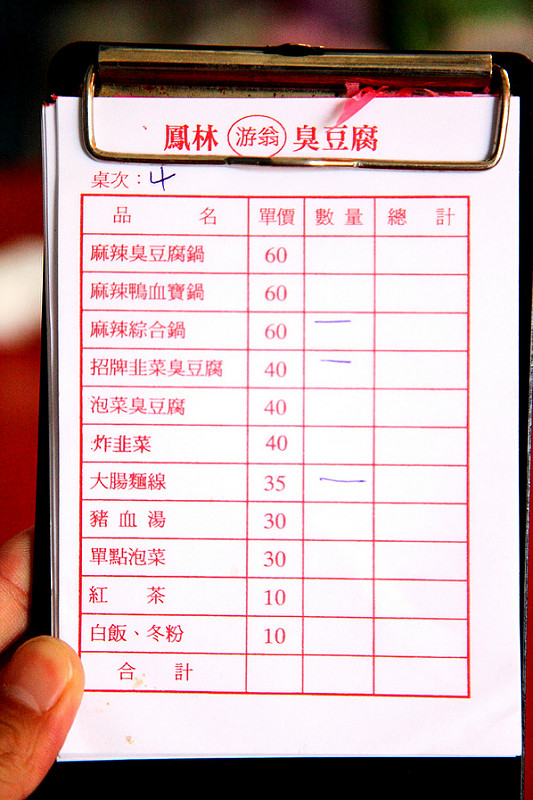 鳳林 游翁 臭豆腐
桌次：4
品 名 單價 數量 總計
麻辣臭豆腐鍋 60
麻辣鴨血寶鍋 60
麻辣綜合鍋 60 一
招牌韭菜臭豆腐 40 一
泡菜臭豆腐 40
炸韭菜 40
大腸麵線 35 一
豬血湯 30
單點泡菜 30
紅茶 10
白飯、冬粉 10
合計